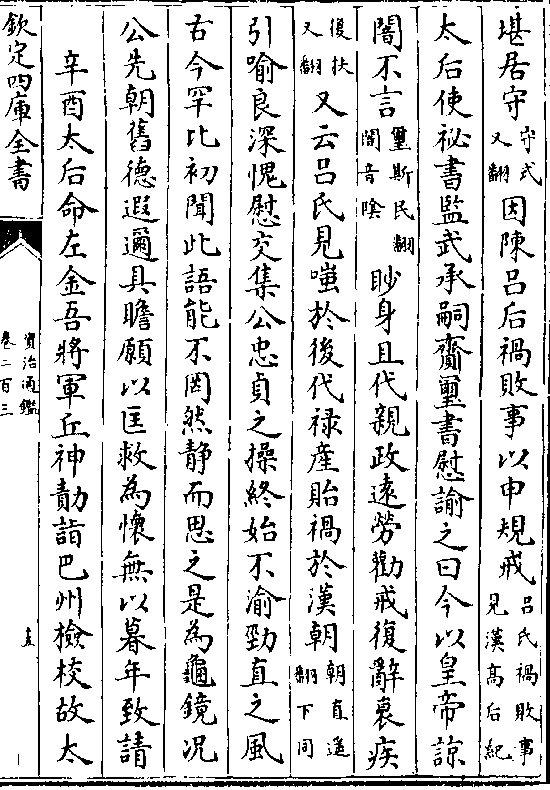 堪居守守式又翻因陳呂后禍敗事以申規戒呂氏禍敗事見漢髙后紀
太后使祕書監武承嗣齎璽書慰諭之曰今以皇帝諒
闇不言璽斯氏翻闇音隂眇身且代親政遠勞勸戒復辭衰疾
復扶又翻又云呂氏見嗤於後代禄產貽禍於漢朝朝直遥翻下同
引喻良深愧慰交集公忠貞之操終始不渝勁直之風
古今罕比初聞此語能不罔然静而思之是為龜鏡况
公先朝舊德遐邇具瞻願以匡救為懷無以暮年致請
辛酉太后命左金吾將軍丘神勣詣巴州檢校故太
欽定四庫全書
資治通鑑
卷二百三